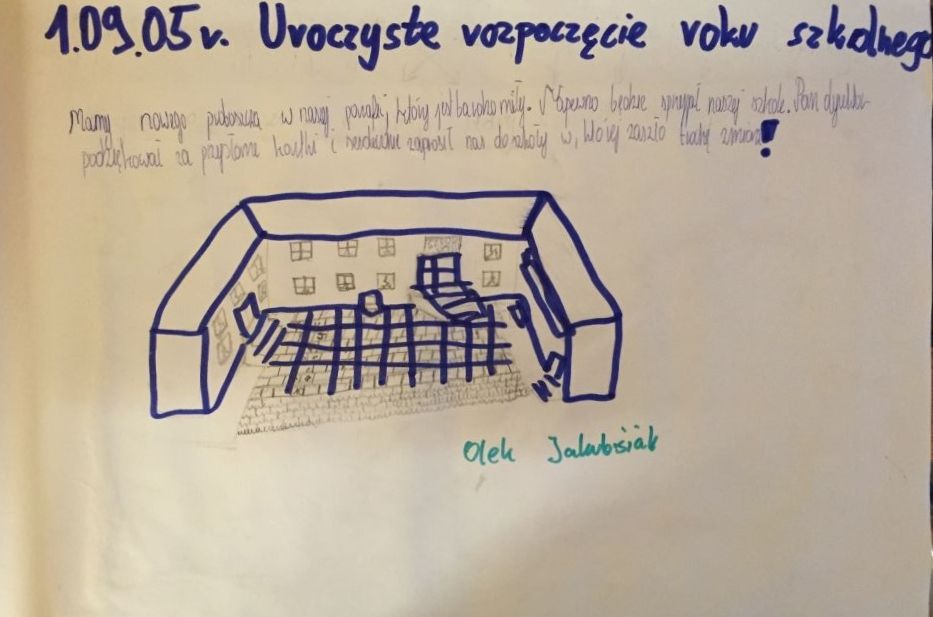 1.09.05 r. Uroczyste rozpoczęcie roku szkolnego
Mamy nowego proboszcza w naszej parafii, który jest bardzo miły. Napewno będzie sprzyjał naszej szkole. Pan dyrektor
podziękował za przysłane kartki i serdecznie zaprosił nas do szkoły w, której zaszło trochę zmian!
Olek Jakubisiak